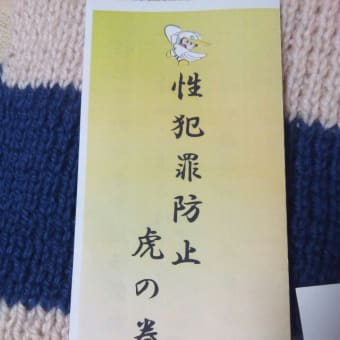 性犯罪防止
虎の巻